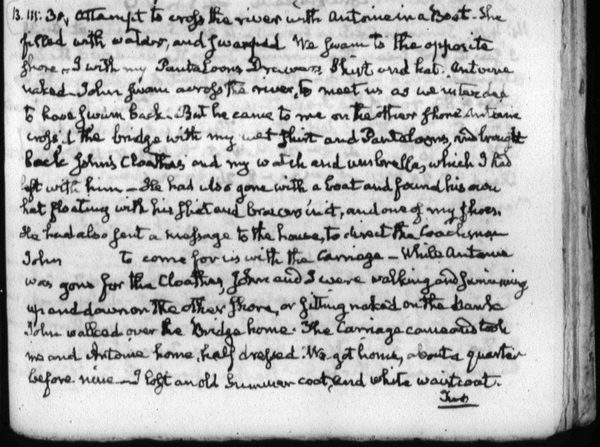 13. III: 30, Attempt to cross the river with Antoine in a Boat. She
filled with water, and swamped. We swam to the opposite
shore – I with my Pantaloons Drawers Shirt and hat. Antoine
naked – John swam across the river, to meet us as we intended
to have swum back. But he came to me on the other shore. Antoine
cross'd the bridge with my wet shirt and Pantaloons, and brought
back John's Cloathes and my watch and umbrella, which I had
left with him – He had also gone with a boat and found his own
hat floating with his Shirt and Braces in it, and one of my shoes.
He had also sent a message to the house, to direct the Coachman
John to come for us with the Carriage – While Antoine
was gone for the Cloathes, John and I were walking and swimming
up and down on the other shore, or sitting naked on the bank
John walked over the Bridge home. The Carriage came and took
me and Antoine home, half dressed. We got home, about a quarter
before nine – I lost an old Summer coat, and white waistcoat.